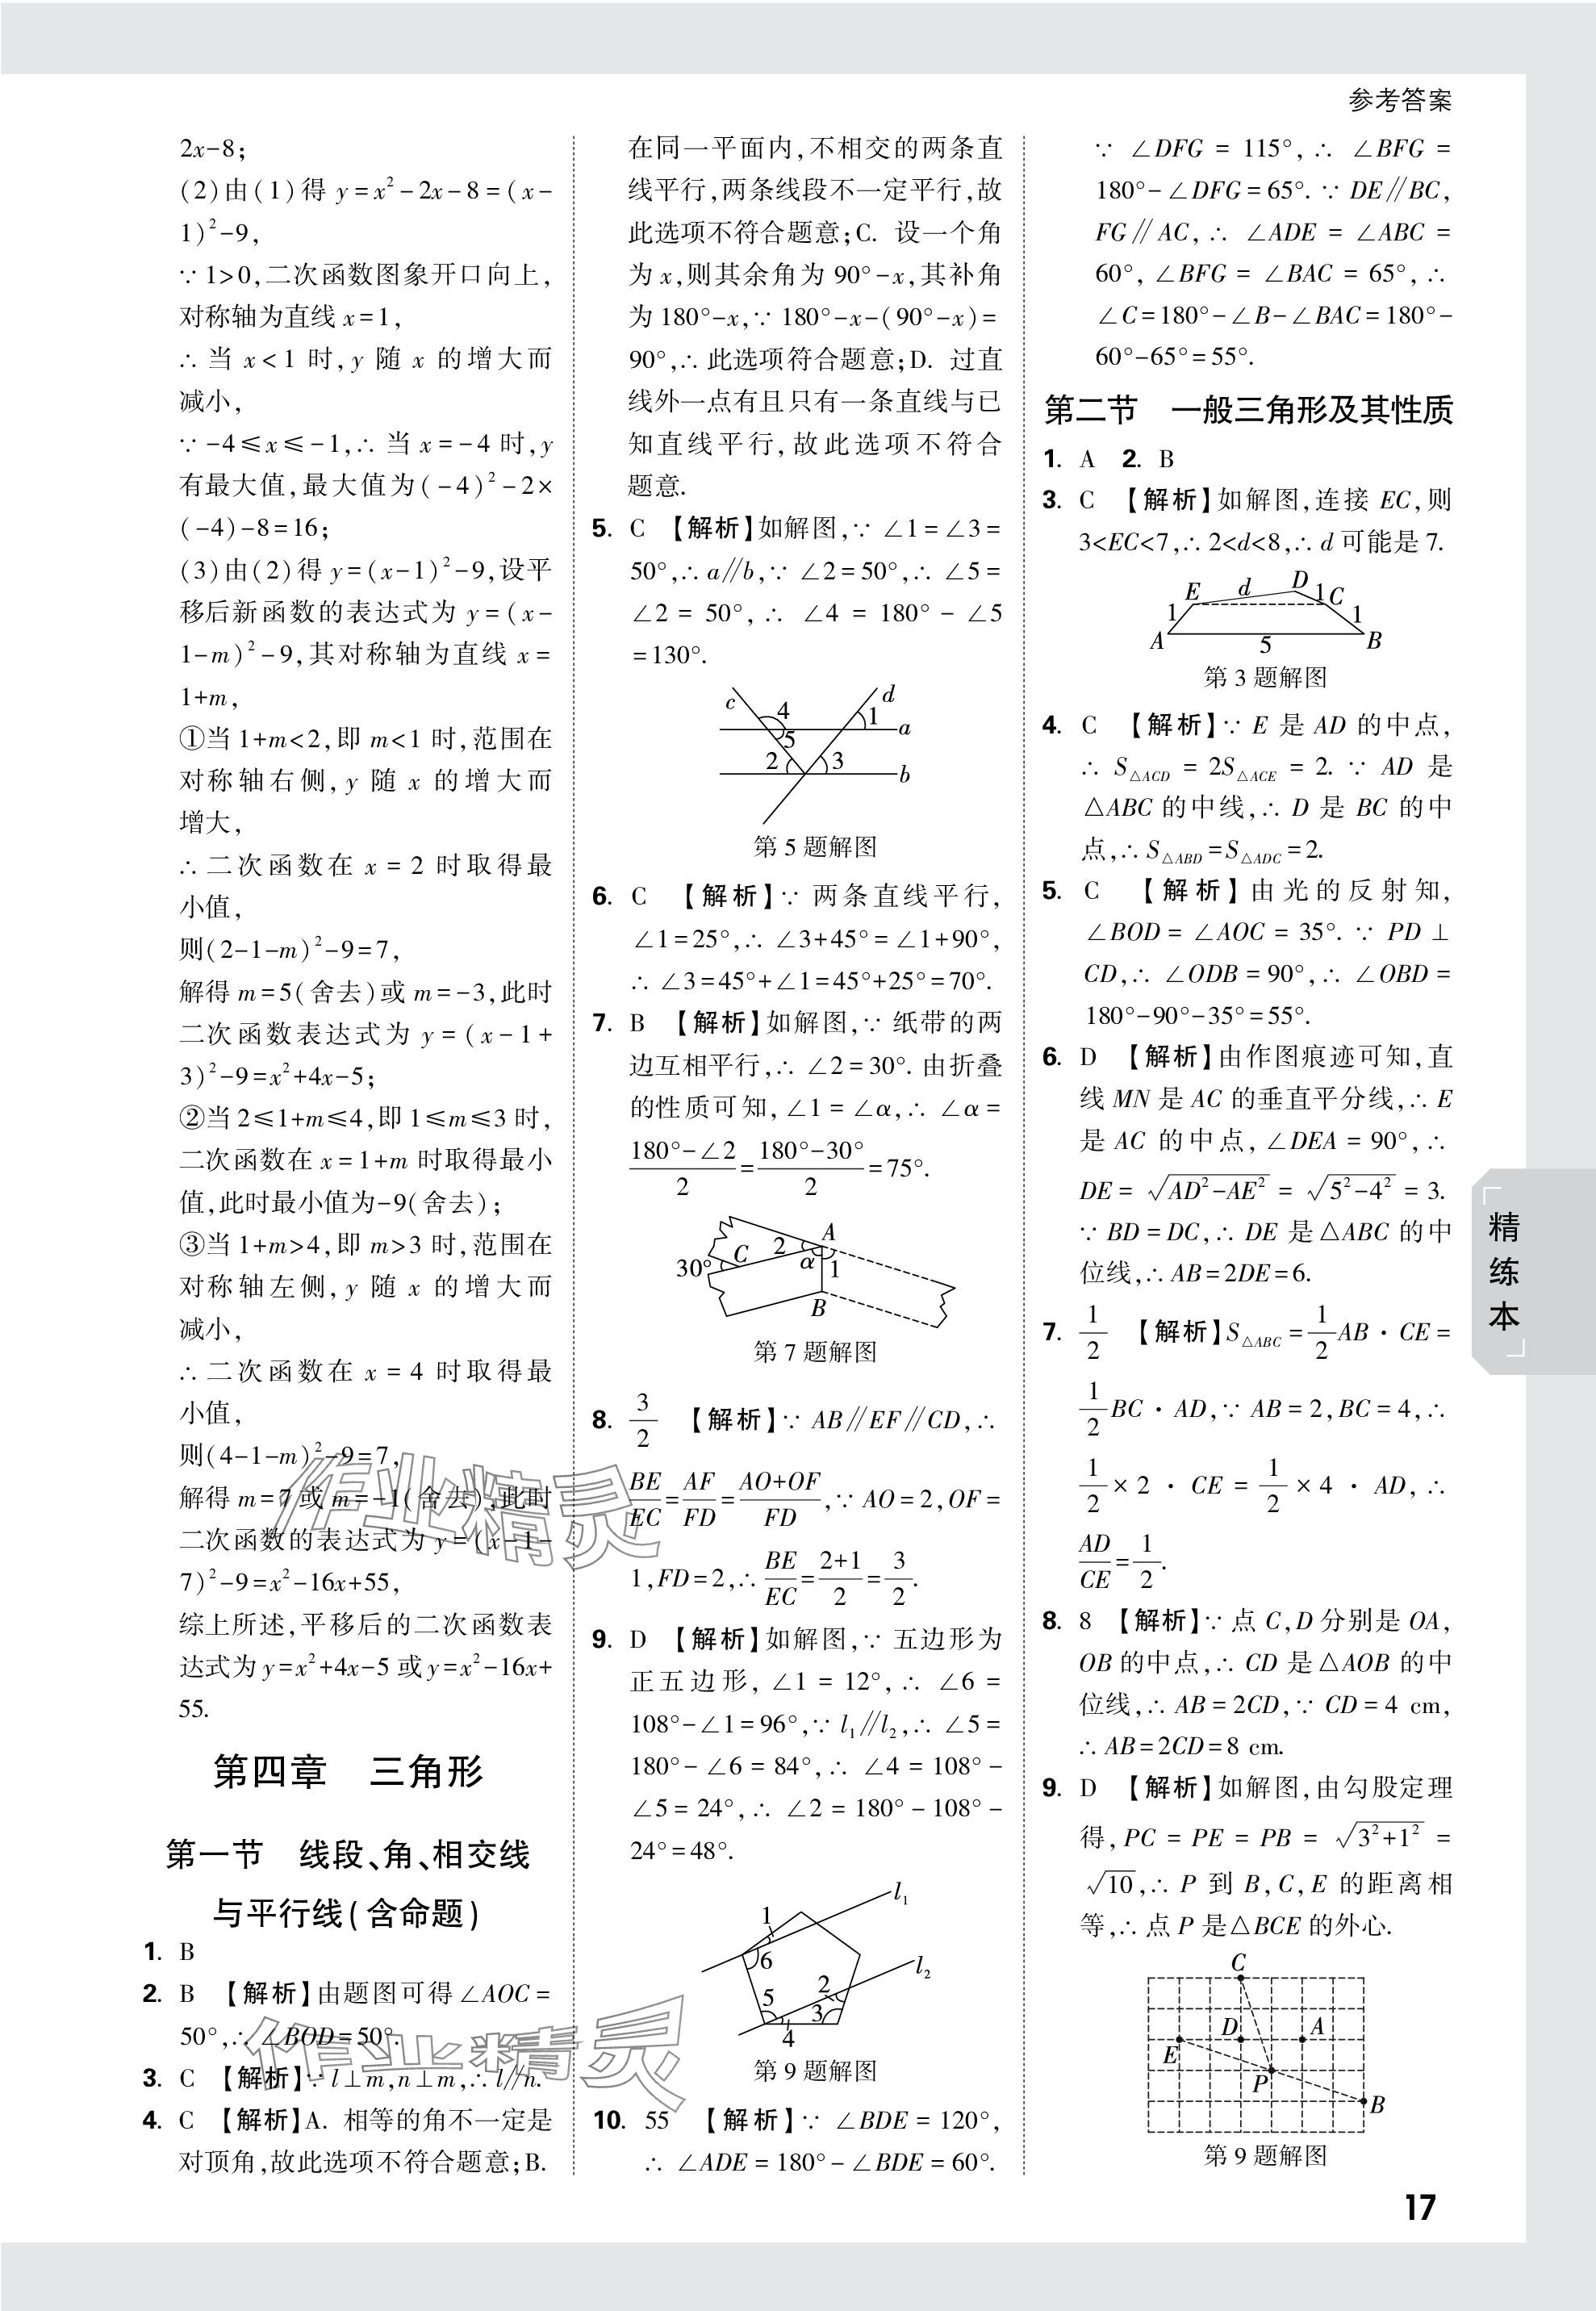 参考答案
2x-8;
(2)由(1)得 y=x²-2x-8=(x-
1)²-9,
∵1>0,二次函数图象开口向上,
对称轴为直线 x=1,
∴当 x<1 时,y 随 x 的增大而
减小,
∵-4≤x≤-1,∴当 x=-4 时,y
有最大值,最大值为(-4)²-2×
(-4)-8=16;
(3)由(2)得 y=(x-1)²-9,设平
移后新函数的表达式为 y=(x-
1-m)²-9,其对称轴为直线 x=
1+m,
①当 1+m<2,即 m<1 时,范围在
对称轴右侧,y 随 x 的增大而
增大,
∴二次函数在 x=2 时取得最
小值,
则(2-1-m)²-9=7,
解得 m=5(舍去)或 m=-3,此时
二次函数表达式为 y=(x-1+
3)²-9=x²+4x-5;
②当 2≤1+m≤4,即 1≤m≤3 时,
二次函数在 x=1+m 时取得最小
值,此时最小值为-9(舍去);
③当 1+m>4,即 m>3 时,范围在
对称轴左侧,y 随 x 的增大而
减小,
∴二次函数在 x=4 时取得最
小值,
则(4-1-m)²-9=7,
解得 m=7 或 m=-1(舍去),此时
二次函数的表达式为 y=(x-1-
7)²-9=x²-16x+55,
综上所述,平移后的二次函数表
达式为 y=x²+4x-5 或 y=x²-16x+
55.
第四章 三角形
第一节 线段、角、相交线
与平行线(含命题)
1. B
2. B 【解析】由题图可得∠AOC=
50°,∴∠BOD=50°.
3. C 【解析】∵l⊥m,n⊥m,∴l∥n.
4. C 【解析】A. 相等的角不一定是
对顶角,故此选项不符合题意;B.
在同一平面内,不相交的两条直
线平行,两条线段不一定平行,故
此选项不符合题意;C. 设一个角
为 x,则其余角为 90°-x,其补角
为 180°-x,∵180°-x-(90°-x)=
90°,∴此选项符合题意;D. 过直
线外一点有且只有一条直线与已
知直线平行,故此选项不符合
题意.
5. C 【解析】如解图,∵∠1=∠3=
50°,∴a∥b,∵∠2=50°,∴∠5=
∠2=50°,∴∠4=180°-∠5
=130°.
c 4 d 1 a
5
2 3 b
第 5 题解图
6. C 【解析】∵两条直线平行,
∠1=25°,∴∠3+45°=∠1+90°,
∴∠3=45°+∠1=45°+25°=70°.
7. B 【解析】如解图,∵纸带的两
边互相平行,∴∠2=30°. 由折叠
的性质可知,∠1=∠α,∴∠α=
(180°-∠2)/2=(180°-30°)/2=75°.
A
30° C 2 α 1
B
第 7 题解图
8. 3/2 【解析】∵AB∥EF∥CD,∴
BE/EC=AF/FD=(AO+OF)/FD,∵AO=2,OF=
1,FD=2,∴BE/EC=(2+1)/2=3/2.
9. D 【解析】如解图,∵五边形为
正五边形,∠1=12°,∴∠6=
108°-∠1=96°,∵l₁∥l₂,∴∠5=
180°-∠6=84°,∴∠4=108°-
∠5=24°,∴∠2=180°-108°-
24°=48°.
1 l₁
6 l₂
5 2
3
4
第 9 题解图
10. 55 【解析】∵∠BDE=120°,
∴∠ADE=180°-∠BDE=60°.
∵∠DFG=115°,∴∠BFG=
180°-∠DFG=65°.∵DE∥BC,
FG∥AC,∴∠ADE=∠ABC=
60°,∠BFG=∠BAC=65°,∴
∠C=180°-∠B-∠BAC=180°-
60°-65°=55°.
第二节 一般三角形及其性质
1. A 2. B
3. C 【解析】如解图,连接 EC,则
3<EC<7,∴2<d<8,∴d 可能是 7.
E d D 1 C
1 1
A 5 B
第 3 题解图
4. C 【解析】∵E 是 AD 的中点,
∴S△ACD=2S△ACE=2.∵AD 是
△ABC 的中线,∴D 是 BC 的中
点,∴S△ABD=S△ADC=2.
5. C 【解析】由光的反射知,
∠BOD=∠AOC=35°.∵PD⊥
CD,∴∠ODB=90°,∴∠OBD=
180°-90°-35°=55°.
6. D 【解析】由作图痕迹可知,直
线 MN 是 AC 的垂直平分线,∴E
是 AC 的中点,∠DEA=90°,∴
DE=√(AD²-AE²)=√(5²-4²)=3.
∵BD=DC,∴DE 是△ABC 的中
位线,∴AB=2DE=6.
7. 1/2 【解析】S△ABC=1/2AB·CE=
1/2BC·AD,∵AB=2,BC=4,∴
1/2×2·CE=1/2×4·AD,∴
AD/CE=1/2.
8. 8 【解析】∵点 C,D 分别是 OA,
OB 的中点,∴CD 是△AOB 的中
位线,∴AB=2CD,∵CD=4 cm,
∴AB=2CD=8 cm.
9. D 【解析】如解图,由勾股定理
得,PC=PE=PB=√(3²+1²)=
√10,∴P 到 B,C,E 的距离相
等,∴点 P 是△BCE 的外心.
C
D A
E
P
B
第 9 题解图
精练本
作业精灵
作业精灵
17